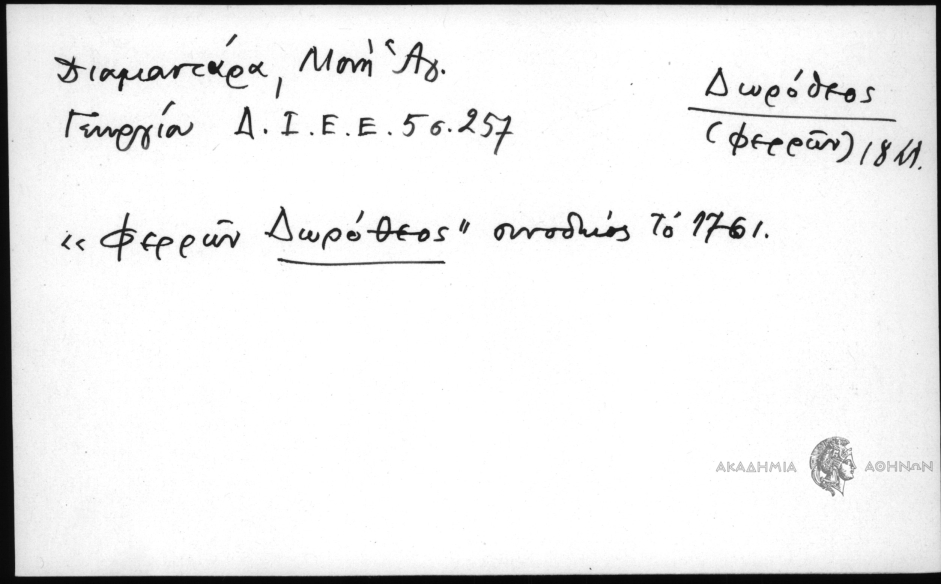 Διαμαντάρα, Μονή Ἁγ.
Γεωργίου Δ.Ι.Ε.Ε. 5 σ. 257
Δωρόθεος
(Φερρῶν) 18
« Φερρῶν Δωρόθεος" συνοδικός τό 1761.
ΑΚΑΔΗΜΙΑ ΑΘΗΝΩΝ